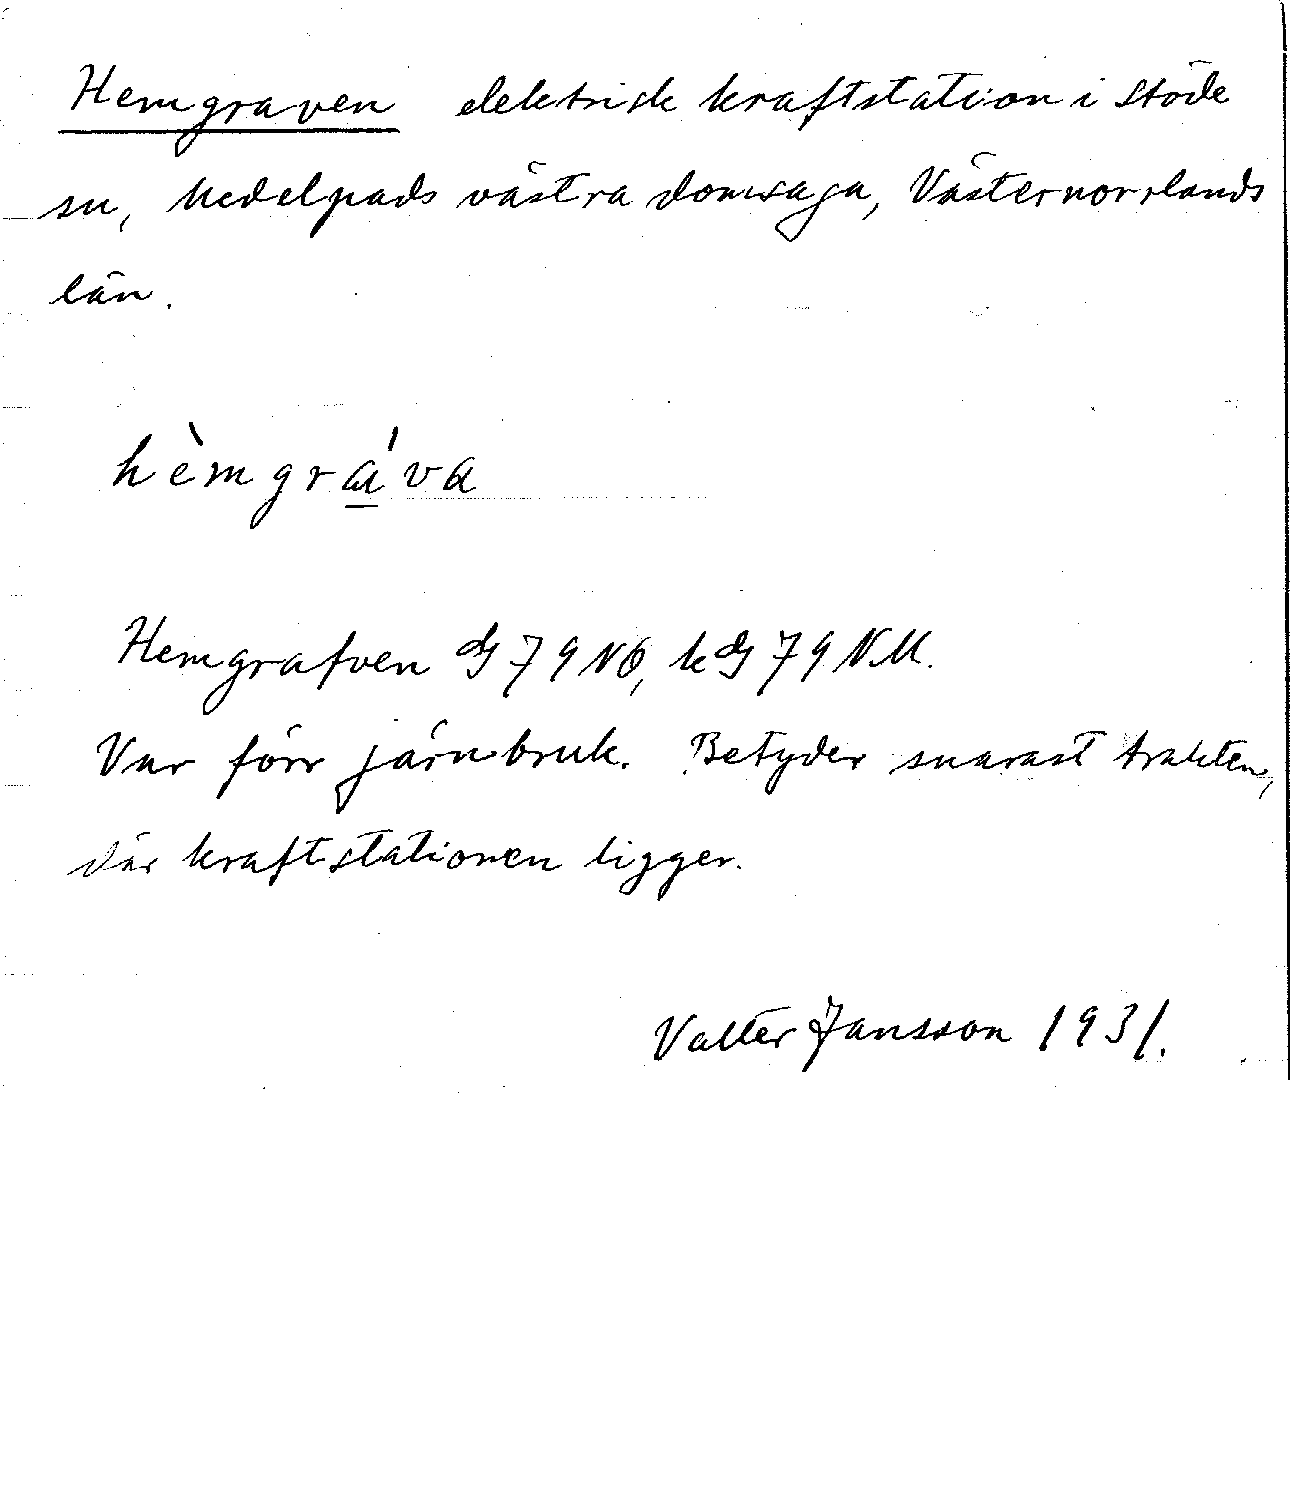 Hemgraven elektrisk kraftstation i Stöde
sn, Medelpads västra domsaga, Västernorrlands
län.
hèmgráva
Hemgrafven G 79 NO, k G 79 N.M.
Var förr järnbruk. Betyder snarast trakten,
där kraftstationen ligger.
Valter Jansson 1931.